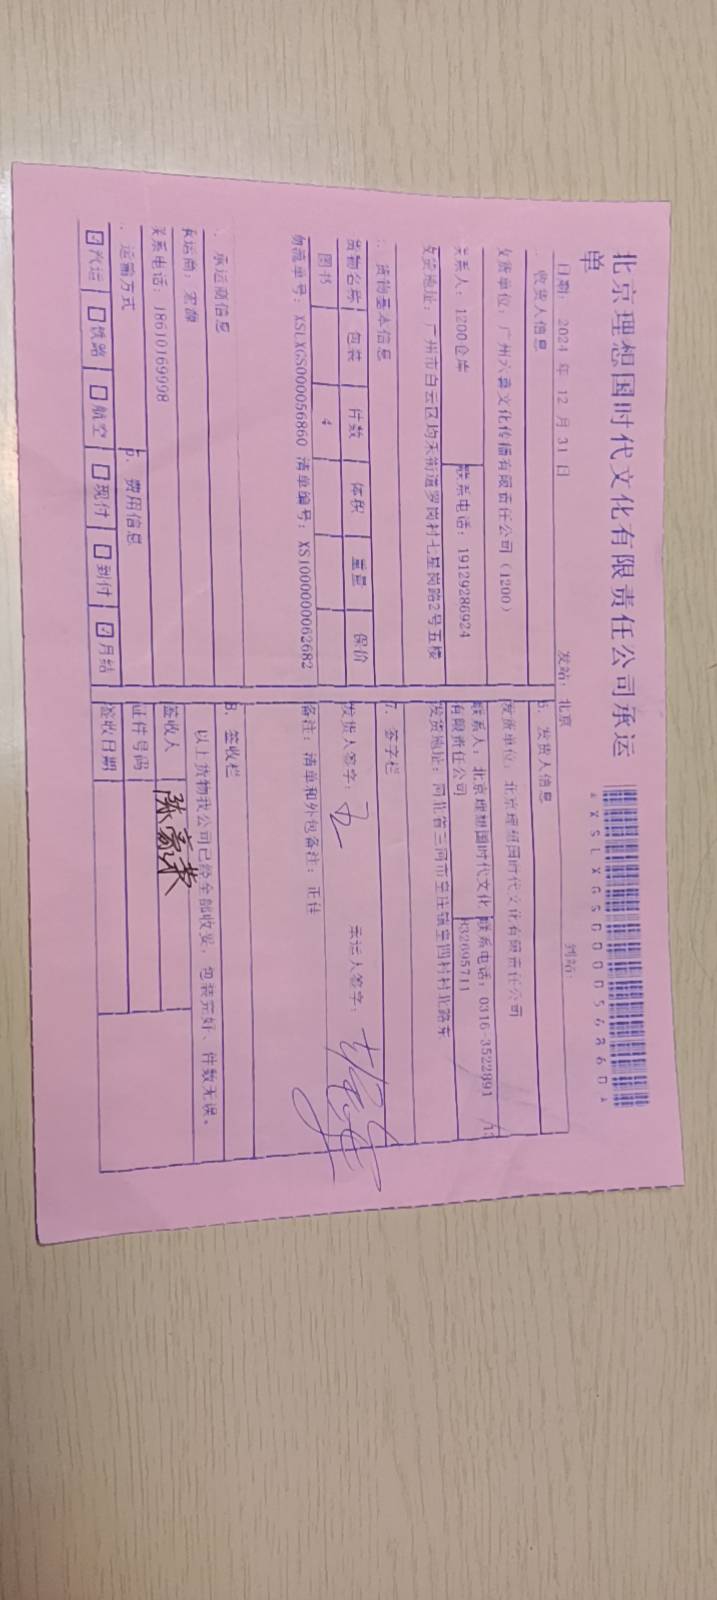 北京理想国时代文化有限责任公司承运
单
*XSLXGS000056860*
日期: 2024 年 12 月 31 日 发站: 北京 到站:
收货人信息
收货单位: 广州六喜文化传播有限责任公司(1200)
联系人: 1200仓库 联系电话: 19129286924
收货地址: 广州市白云区均禾街道罗岗村七星岗路2号五楼
货物基本信息
货物名称 包装 件数 体积 重量 保价
图书 4
物流单号: XSLXGS000056860 清单编号: XS1000000062682
承运商信息
承运商: 宏馥
联系电话: 18610169998
运输方式 6. 费用信息
☑汽运 □铁路 □航空 □现付 □到付 ☑月结
5. 发货人信息
发货单位: 北京理想国时代文化有限责任公司
联系人: 北京理想国时代文化有限责任公司 联系电话: 0316-3522891
832695711
发货地址: 河北省三河市皇庄镇皇四村村北路东
7. 签字栏
发货人签字: 承运人签字:
备注: 清单和外包备注: 正仕
8. 签收栏
以上货物我公司已经全部收妥, 包装完好、件数无误。
签收人
证件号码
签收日期